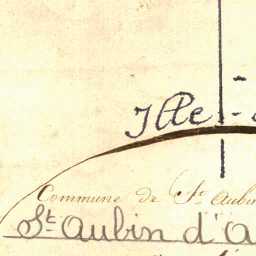 Ille-
Commune de St Aubin
St Aubin d'A